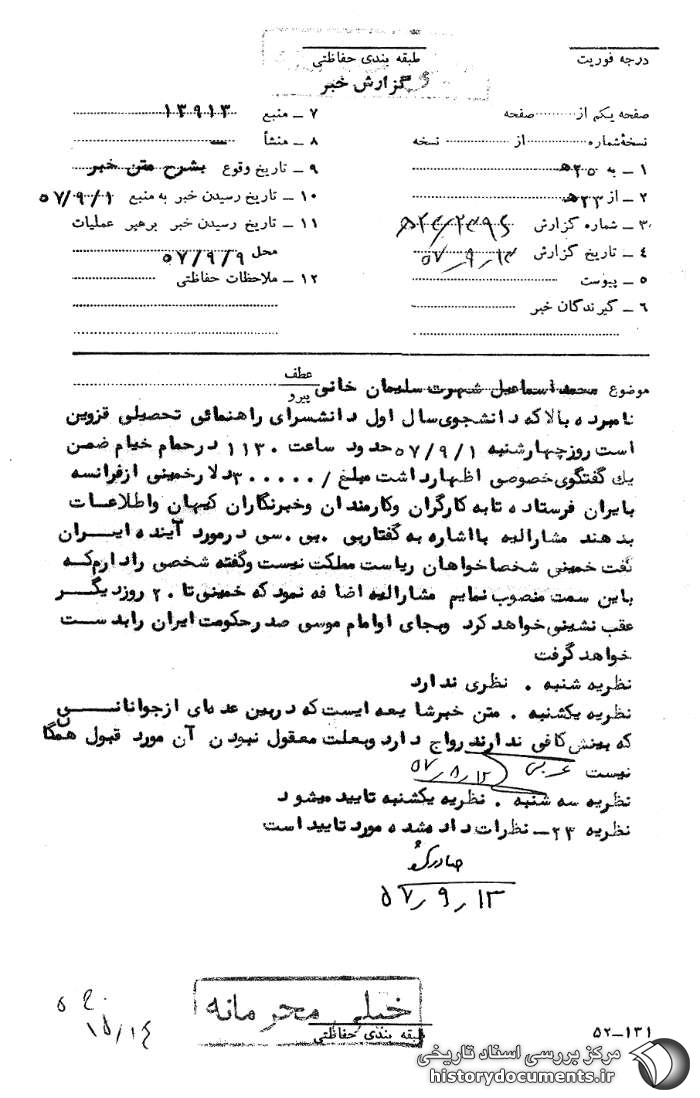 درجه فوریت
طبقه بندی حفاظتی
گزارش خبر
صفحه یکم از ............ صفحه
نسخهٔ شماره ............ از ............ نسخه
۱ ــ به ۲۵۰ هـ
۲ ــ از ۲۳ هـ
۳ ــ شماره گزارش
۴ ــ تاریخ گزارش ۵۷٫۹٫۱۳
۵ ــ پیوست
۶ ــ گیرندگان خبر
۷ ــ منبع ۱۳۹۱۳
۸ ــ منشأ ــ
۹ ــ تاریخ وقوع بشرح متن خبر
۱۰ ــ تاریخ رسیدن خبر به منبع ۵۷/۹/۱
۱۱ ــ تاریخ رسیدن خبر برهبر عملیات
محل ۵۷/۹/۹
۱۲ ــ ملاحظات حفاظتی
موضوع محمد اسماعیل شهرت سلیمان خانی عطف
پیرو
نامبرده بالا که دانشجوی سال اول دانشسرای راهنمائی تحصیلی قزوین
است روز چهارشنبه ۵۷/۹/۱ حدود ساعت ۱۱۳۰ در حمام خیام ضمن
یك گفتگوی خصوصی اظهار داشت مبلغ /۳۰۰۰۰۰ دلار خمینی از فرانسه
بایران فرستاده تا به کارگران و کارمندان و خبرنگاران کیهان و اطلاعات
بدهند مشارالیه با اشاره به گفتار بی . بی . سی در مورد آینده ایران
گفت خمینی شخصا خواهان ریاست مملکت نیست و گفته شخصی را دارم که
باین سمت منصوب نمایم مشارالیه اضافه نمود که خمینی تا ۲۰ روز دیگر
عقب نشینی خواهد کرد و بجای او امام موسی صدر حکومت ایران را بدست
خواهد گرفت
نظریه شنبه . نظری ندارد
نظریه یکشنبه . متن خبر شایعه ایست که در بین عده ای از جوانانی
که بینش کافی ندارند رواج دارد و بعلت معقول نبودن آن مورد قبول همگان
نیست ۵۷٫۸٫۱۲
نظریه سه شنبه . نظریه یکشنبه تایید میشود
نظریه ۲۳ــ نظرات داده شده مورد تایید است
۵۷٫۹٫۱۳
خیلی محرمانه
طبقه بندی حفاظتی
۱۵/۱۴
۵۲ــ۱۳۱
مرکز بررسی اسناد تاریخی
historydocuments.ir